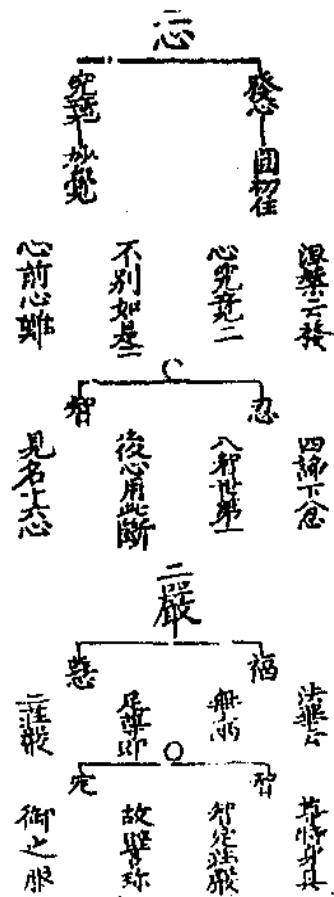 二心
發心—圓初住
究竟—妙覺
涅槃云發
心究竟二
不別如是二
心前心難
忍
智
四諦下各
世第一
後心用此斷
見名十六心
二嚴
福
慧
法華云
無兩
足尊即
二莊嚴
智
定
尊特身具
智定莊嚴
故譬珍
御之服